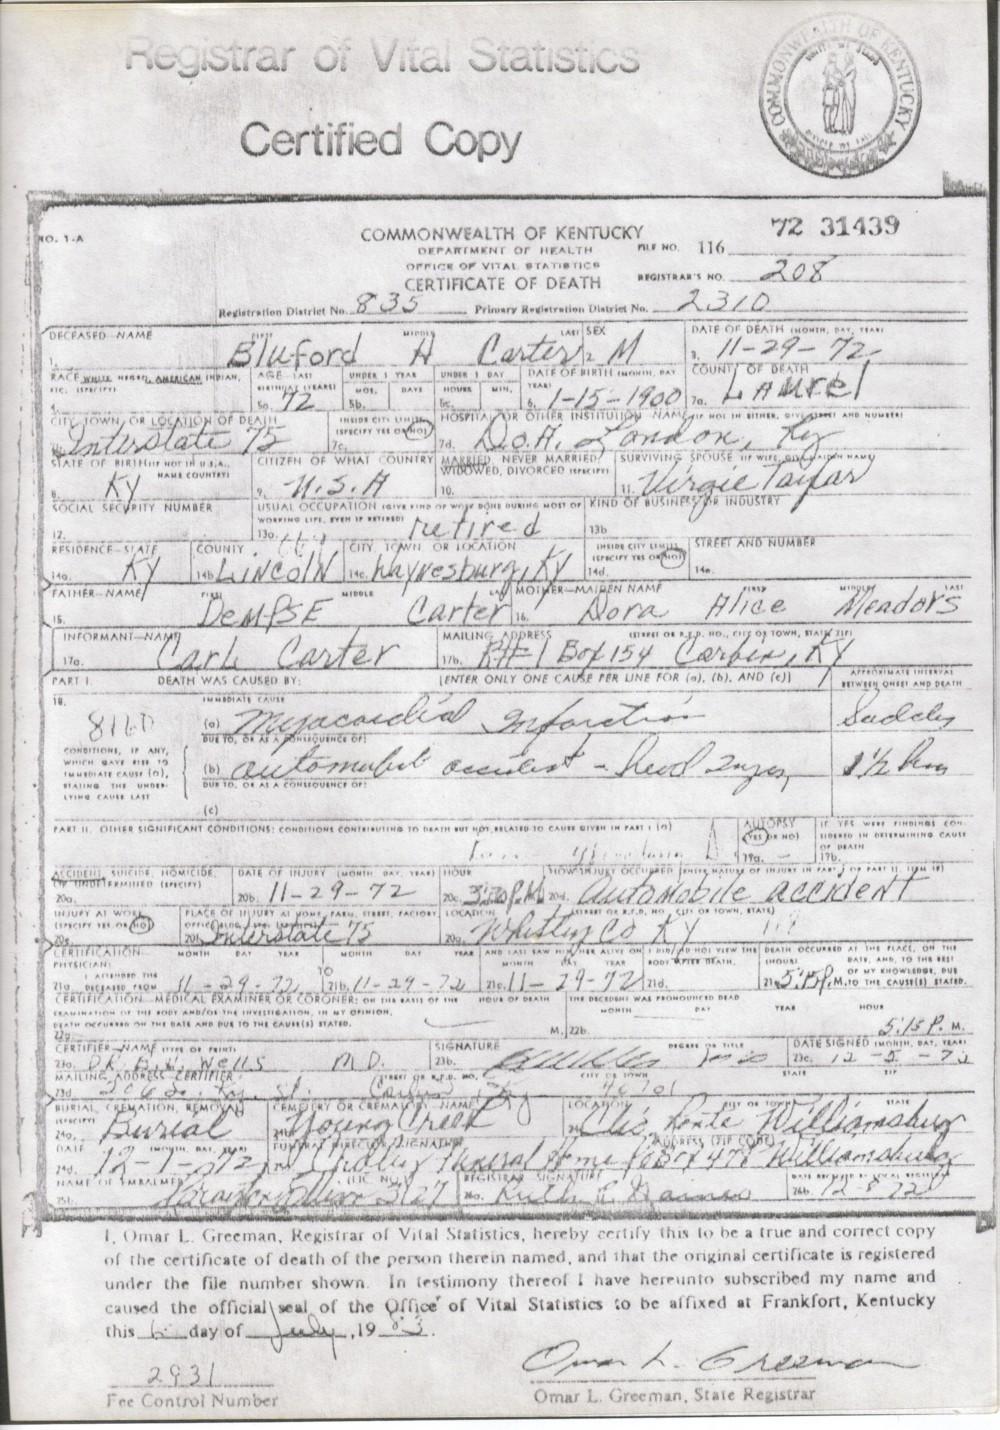 Registrar of Vital Statistics
Certified Copy
COMMONWEALTH OF KENTUCKY
NO. 1-A
COMMONWEALTH OF KENTUCKY
DEPARTMENT OF HEALTH
OFFICE OF VITAL STATISTICS
CERTIFICATE OF DEATH
72 31439
FILE NO. 116
REGISTRAR'S NO. 208
Registration District No. 835 Primary Registration District No. 2310
DECEASED—NAME FIRST MIDDLE LAST SEX DATE OF DEATH (MONTH, DAY, YEAR)
1. Bluford H Carter 2. M 3. 11-29-72
RACE WHITE, NEGRO, AMERICAN INDIAN, ETC. (SPECIFY) AGE—LAST BIRTHDAY (YEARS) UNDER 1 YEAR MOS. DAYS UNDER 1 DAY HOURS MIN. DATE OF BIRTH (MONTH, DAY, YEAR) COUNTY OF DEATH
4. 5a. 72 5b. 5c. 6. 1-15-1900 7a. Laurel
CITY, TOWN, OR LOCATION OF DEATH INSIDE CITY LIMITS (SPECIFY YES OR NO) HOSPITAL OR OTHER INSTITUTION—NAME (IF NOT IN EITHER, GIVE STREET AND NUMBER)
7b. Interstate 75 7c. 7d. D.O.A. London, Ky
STATE OF BIRTH (IF NOT IN U.S.A., NAME COUNTRY) CITIZEN OF WHAT COUNTRY MARRIED, NEVER MARRIED, WIDOWED, DIVORCED (SPECIFY) SURVIVING SPOUSE (IF WIFE, GIVE MAIDEN NAME)
8. KY 9. U.S.A 10. 11. Virgie Taylor
SOCIAL SECURITY NUMBER USUAL OCCUPATION (GIVE KIND OF WORK DONE DURING MOST OF WORKING LIFE, EVEN IF RETIRED) KIND OF BUSINESS OR INDUSTRY
12. 13a. retired 13b
RESIDENCE—STATE COUNTY CITY, TOWN, OR LOCATION INSIDE CITY LIMITS (SPECIFY YES OR NO) STREET AND NUMBER
14a. KY 14b. Lincoln 14c. Waynesburg, KY 14d. 14e.
FATHER—NAME FIRST MIDDLE LAST MOTHER—MAIDEN NAME FIRST MIDDLE LAST
15. Dempse Carter 16. Dora Alice Meadors
INFORMANT—NAME MAILING ADDRESS (STREET OR R.F.D. NO., CITY OR TOWN, STATE, ZIP)
17a. Carl Carter 17b. Rt# 1 Box 154 Corbin, KY
PART I. DEATH WAS CAUSED BY: [ENTER ONLY ONE CAUSE PER LINE FOR (a), (b), AND (c)] APPROXIMATE INTERVAL BETWEEN ONSET AND DEATH
18. IMMEDIATE CAUSE
(a) Myocardial Infarction
DUE TO, OR AS A CONSEQUENCE OF:
CONDITIONS, IF ANY, WHICH GAVE RISE TO IMMEDIATE CAUSE (a), STATING THE UNDERLYING CAUSE LAST
(b) automobile accident - head injury 1 1/2 hrs
DUE TO, OR AS A CONSEQUENCE OF:
(c)
PART II. OTHER SIGNIFICANT CONDITIONS: CONDITIONS CONTRIBUTING TO DEATH BUT NOT RELATED TO CAUSE GIVEN IN PART I (a) AUTOPSY (YES OR NO) IF YES WERE FINDINGS CONSIDERED IN DETERMINING CAUSE OF DEATH
19a. - 19b.
ACCIDENT, SUICIDE, HOMICIDE, OR UNDETERMINED (SPECIFY) DATE OF INJURY (MONTH, DAY, YEAR) HOUR HOW INJURY OCCURRED (ENTER NATURE OF INJURY IN PART I OR PART II, ITEM 18)
20a. 20b. 11-29-72 20c. 3:30 P.M 20d. Automobile accident
INJURY AT WORK (SPECIFY YES OR NO) PLACE OF INJURY AT HOME, FARM, STREET, FACTORY, OFFICE BLDG., ETC. (SPECIFY) LOCATION (STREET OR R.F.D. NO., CITY OR TOWN, STATE)
20e. 20f. Interstate 75 20g. Whitley Co KY
CERTIFICATION— MONTH DAY YEAR MONTH DAY YEAR AND LAST SAW HIM/HER ALIVE ON MONTH DAY YEAR I DID/DID NOT VIEW THE BODY AFTER DEATH. DEATH OCCURRED AT THE PLACE, ON THE DATE, AND, TO THE BEST OF MY KNOWLEDGE, DUE TO THE CAUSE(S) STATED.
PHYSICIAN: I ATTENDED THE DECEASED FROM
21a. 11-29-72 TO 21b. 11-29-72 21c. 11-29-72 21d. 21e. 5:15 P. M.
CERTIFICATION—MEDICAL EXAMINER OR CORONER: ON THE BASIS OF THE EXAMINATION OF THE BODY AND/OR THE INVESTIGATION, IN MY OPINION, DEATH OCCURRED ON THE DATE AND DUE TO THE CAUSE(S) STATED. HOUR OF DEATH THE DECEDENT WAS PRONOUNCED DEAD MONTH DAY YEAR HOUR
22a. M. 22b. 5:15 P. M.
CERTIFIER—NAME (TYPE OR PRINT) SIGNATURE DEGREE OR TITLE DATE SIGNED (MONTH, DAY, YEAR)
23a. Dr. Wells M D. 23b. 23c. 12-5-72
MAILING ADDRESS—CERTIFIER STREET OR R.F.D. NO. CITY OR TOWN STATE ZIP
23d. Ky. St. Corbin Ky 40701
BURIAL, CREMATION, REMOVAL (SPECIFY) CEMETERY OR CREMATORY—NAME LOCATION CITY OR TOWN STATE
24a. Burial 24b. Young Creek 24c. Williamsburg
DATE (MONTH, DAY, YEAR) FUNERAL DIRECTOR SIGNATURE ADDRESS (ZIP CODE)
24d. 12-1-72 Funeral Home PO Box 478 Williamsburg
NAME OF EMBALMER (LIC. NO.) REGISTRAR SIGNATURE
25b. 26a. 26b. 12-8-72
I, Omar L. Greeman, Registrar of Vital Statistics, hereby certify this to be a true and correct copy
of the certificate of death of the person therein named, and that the original certificate is registered
under the file number shown. In testimony thereof I have hereunto subscribed my name and
caused the official seal of the Office of Vital Statistics to be affixed at Frankfort, Kentucky
this 6 day of July, 1983.
2931
Fee Control Number
Omar L. Greeman
Omar L. Greeman, State Registrar